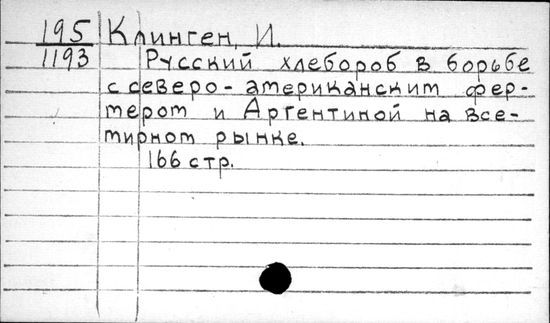 195 Клинген, И.
1193 Русский хлебороб в борьбе
с северо-американским фер-
мером и Аргентиной на все-
мирном рынке.
166 стр.